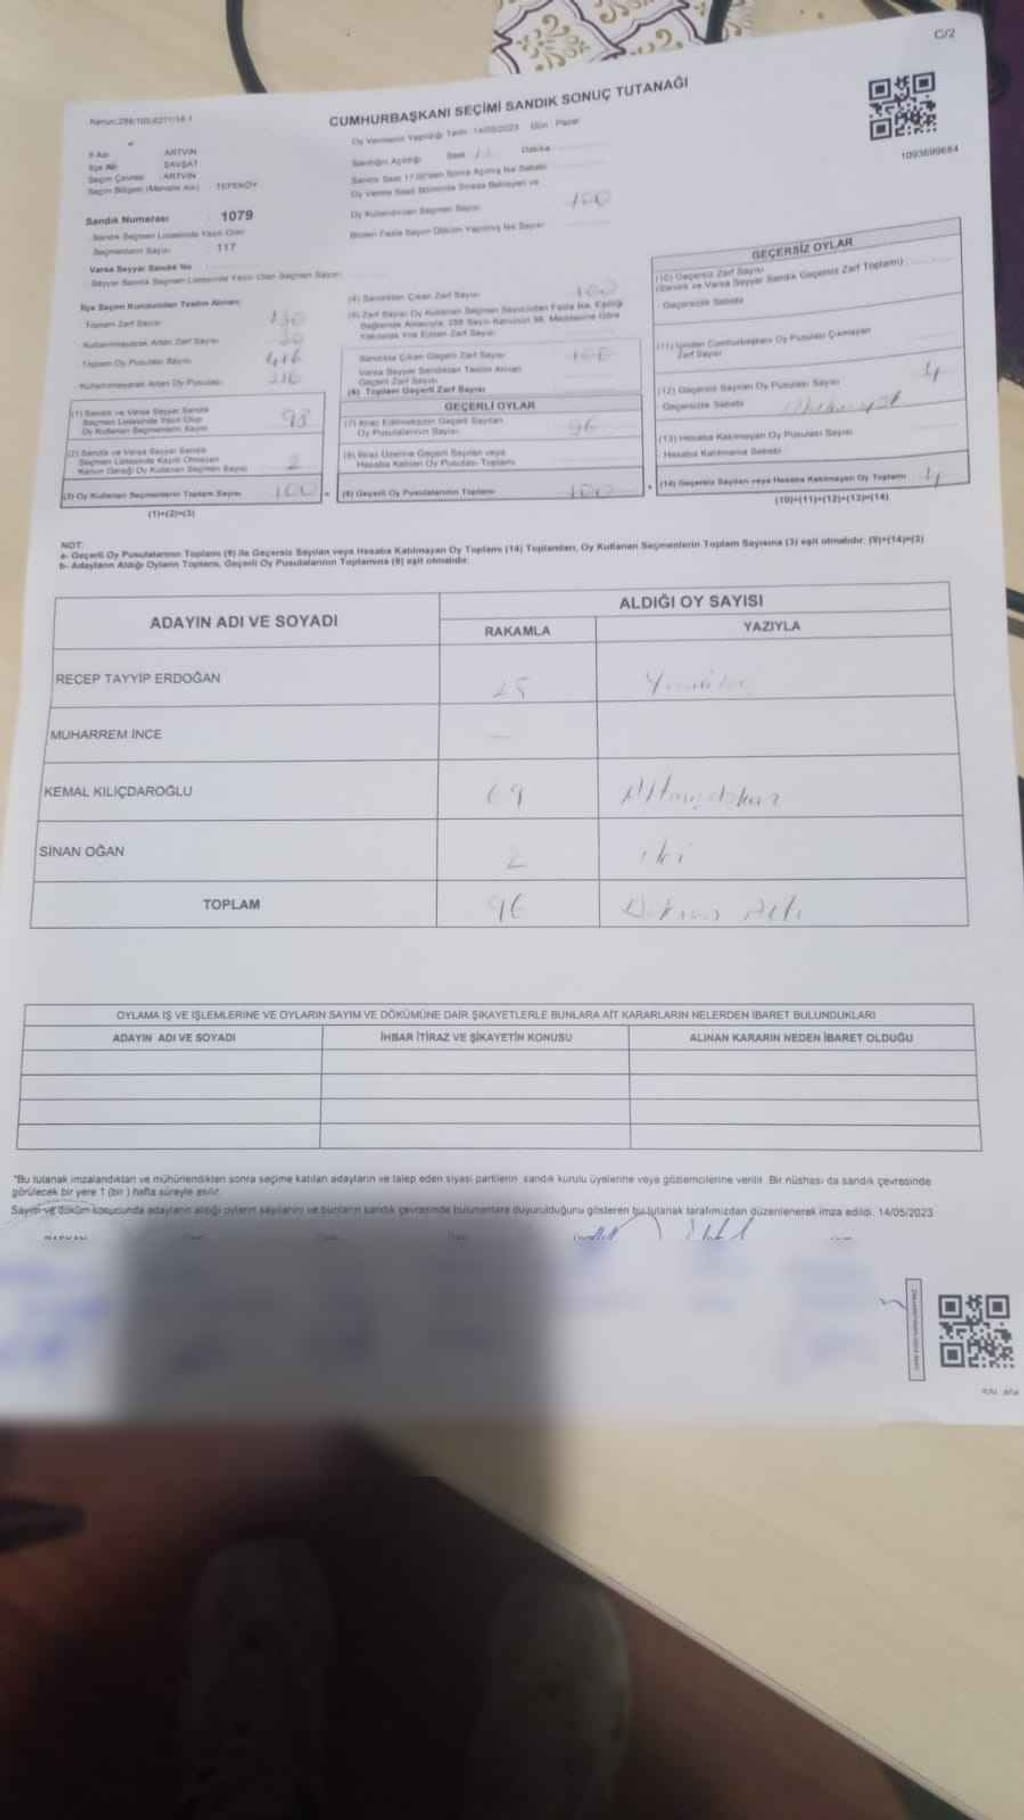 C/2
CUMHURBAŞKANI SEÇİMİ SANDIK SONUÇ TUTANAĞI
Oy Vermenin Yapıldığı Tarih: 14/05/2023 Gün: Pazar
1093699684
İl Adı ARTVİN
İlçe Adı ŞAVŞAT
Seçim Çevresi ARTVİN
Seçim Bölgesi (Mahalle Adı) TEPEKÖY
Sandık Numarası 1079
Sandık Seçmen Listesinde Yazılı Olan
Seçmenlerin Sayısı 117
Varsa Seyyar Sandık No
Seyyar Sandık Seçmen Listesinde Yazılı Olan Seçmen Sayısı
Oy Kullandırılan Seçmen Sayısı 100
İlçe Seçim Kurulundan Teslim Alınan
Toplam Zarf Sayısı
Kullanılmayarak Artan Zarf Sayısı
Toplam Oy Pusulası Sayısı 416
Kullanılmayarak Artan Oy Pusulası
(1) Sandık ve Varsa Seyyar Sandık
Seçmen Listesinde Yazılı Olup
Oy Kullanan Seçmenlerin Sayısı 98
(2) Sandık ve Varsa Seyyar Sandık
Seçmen Listesinde Kayıtlı Olmayan
Kanun Gereği Oy Kullanan Seçmen Sayısı 2
(3) Oy Kullanan Seçmenlerin Toplam Sayısı 100
(1)+(2)=(3)
(4) Sandıktan Çıkan Zarf Sayısı 100
Sandıkta Çıkan Geçerli Zarf Sayısı 100
Varsa Seyyar Sandıktan Teslim Alınan
Geçerli Zarf Sayısı
(6) Toplam Geçerli Zarf Sayısı
GEÇERLİ OYLAR
(7) İtiraz Edilmeksizin Geçerli Sayılan
Oy Pusulalarının Sayısı 96
(8) İtiraz Üzerine Geçerli Sayılan veya
Hesaba Katılan Oy Pusulası Toplamı
(9) Geçerli Oy Pusulalarının Toplamı 100
GEÇERSİZ OYLAR
(10) Geçersiz Zarf Sayısı
(Sandık ve Varsa Seyyar Sandık Geçersiz Zarf Toplamı)
Geçersizlik Sebebi
(11) İçinden Cumhurbaşkanı Oy Pusulası Çıkmayan
Zarf Sayısı
(12) Geçersiz Sayılan Oy Pusulası Sayısı 4
Geçersizlik Sebebi
(13) Hesaba Katılmayan Oy Pusulası Sayısı
Hesaba Katılmama Sebebi
(14) Geçersiz Sayılan veya Hesaba Katılmayan Oy Toplamı 4
(10)+(11)+(12)+(13)=(14)
NOT:
a- Geçerli Oy Pusulalarının Toplamı (9) ile Geçersiz Sayılan veya Hesaba Katılmayan Oy Toplamı (14) Toplamları, Oy Kullanan Seçmenlerin Toplam Sayısına (3) eşit olmalıdır. (9)+(14)=(3)
b- Adayların Aldığı Oyların Toplamı, Geçerli Oy Pusulalarının Toplamına (9) eşit olmalıdır.
ADAYIN ADI VE SOYADI ALDIĞI OY SAYISI
RAKAMLA YAZIYLA
RECEP TAYYİP ERDOĞAN 25
MUHARREM İNCE -
KEMAL KILIÇDAROĞLU 69 Altmışdokuz
SİNAN OĞAN 2 iki
TOPLAM 96 Doksan Altı
OYLAMA İŞ VE İŞLEMLERİNE VE OYLARIN SAYIM VE DÖKÜMÜNE DAİR ŞİKAYETLERLE BUNLARA AİT KARARLARIN NELERDEN İBARET BULUNDUKLARI
ADAYIN ADI VE SOYADI İHBAR İTİRAZ VE ŞİKAYETİN KONUSU ALINAN KARARIN NEDEN İBARET OLDUĞU
"Bu tutanak imzalandıktan ve mühürlendikten sonra seçime katılan adayların ve talep eden siyasi partilerin sandık kurulu üyelerine veya gözlemcilerine verilir. Bir nüshası da sandık çevresinde
görülecek bir yere 1 (bir ) hafta süreyle asılır.
Sayım ve döküm sonucunda adayların aldığı oyların sayılarını ve bunların sandık çevresinde bulunanlara duyurulduğunu gösteren bu tutanak tarafımızdan düzenlenerek imza edildi. 14/05/2023